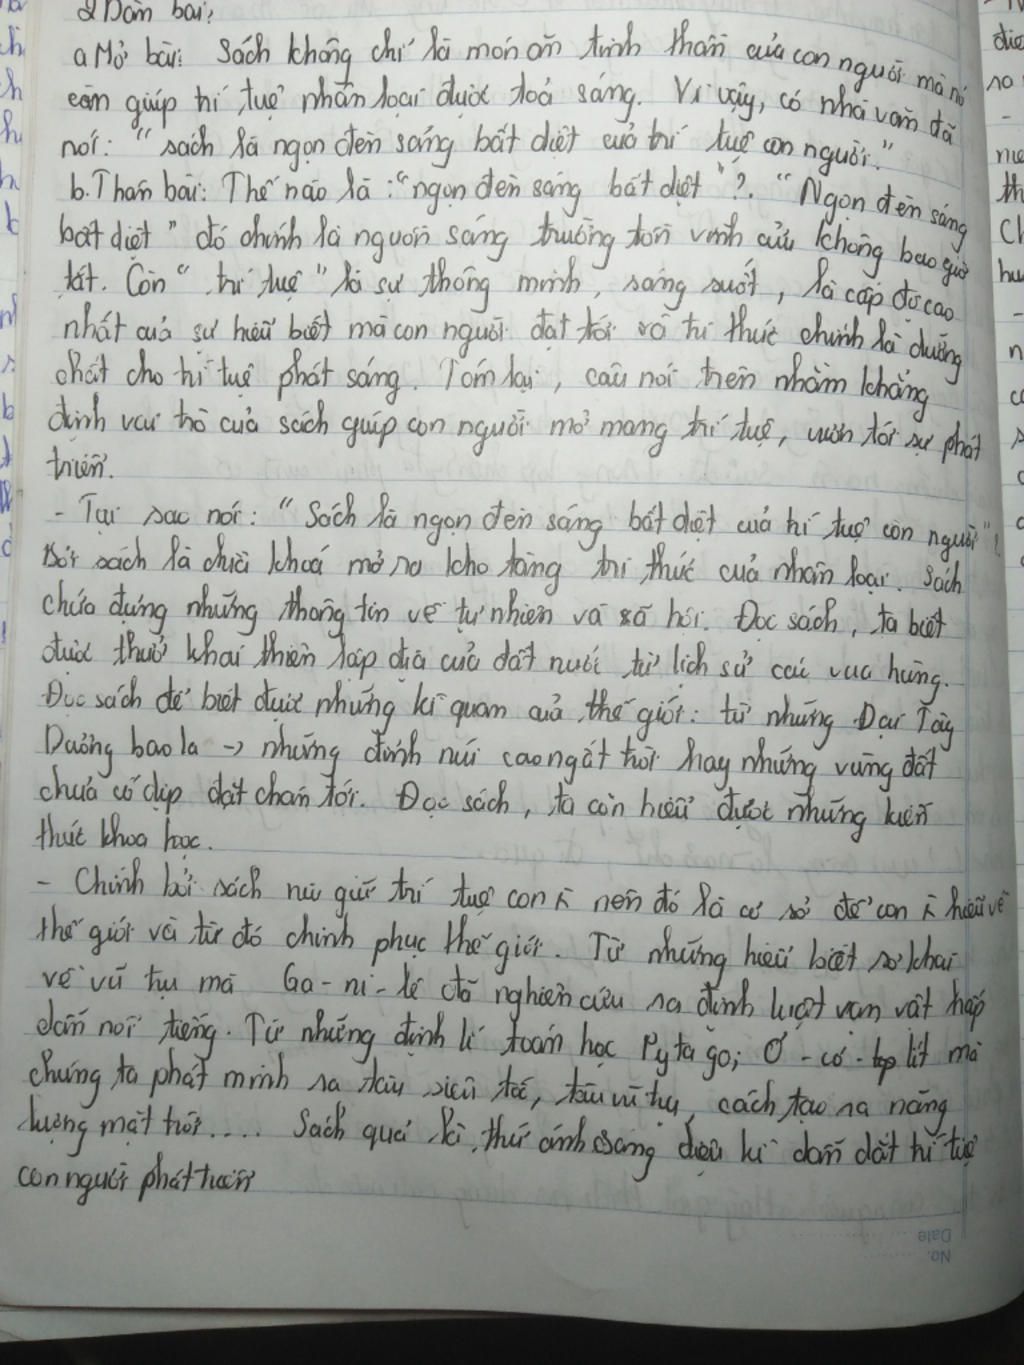 2 Dàn bài:
a Mở bài: Sách không chỉ là món ăn tinh thần của con người mà nó
còn giúp trí tuệ nhân loại được toả sáng. Vì vậy, có nhà văn đã
nói: "sách là ngọn đèn sáng bất diệt của trí tuệ con người."
b. Thân bài: Thế nào là: "ngọn đèn sáng bất diệt"?. "Ngọn đèn sáng
bất diệt" đó chính là nguồn sáng trường tồn vĩnh cửu không bao giờ
tắt. Còn "trí tuệ" là sự thông minh, sáng suốt, là cấp độ cao
nhất của sự hiểu biết mà con người đạt tới và tri thức chính là dưỡng
chất cho trí tuệ phát sáng. Tóm lại, câu nói trên nhằm khẳng
định vai trò của sách giúp con người mở mang trí tuệ, vươn tới sự phát
triển.
- Tại sao nói: "Sách là ngọn đèn sáng bất diệt của trí tuệ con người"?
Bởi sách là chìa khoá mở ra kho tàng tri thức của nhân loại. Sách
chứa đựng những thông tin về tự nhiên và xã hội. Đọc sách, ta biết
được thuở khai thiên lập địa của đất nước từ lịch sử các vua hùng.
Đọc sách để biết được những kì quan của thế giới: từ những Đại Tây
Dương bao la -> những đỉnh núi cao ngất trời hay những vùng đất
chưa có dịp đặt chân tới. Đọc sách, ta còn hiểu được những kiến
thức khoa học.
- Chính bởi sách nu giữ trí tuệ con nên đó là cơ sở để con hiểu về
thế giới và từ đó chinh phục thế giới. Từ những hiểu biết sơ khai
về vũ trụ mà Ga-ni-lê đã nghiên cứu ra định luật vạn vật hấp
dẫn nổi tiếng. Từ những định lí toán học Pytago; Ơ-cơ-lit mà
chúng ta phát minh ra tàu siêu tốc, tàu vũ trụ, cách tạo ra năng
lượng mặt trời.... Sách quả là thứ ánh sáng diệu kì dẫn dắt trí tuệ
con người phát triển
No.
Date